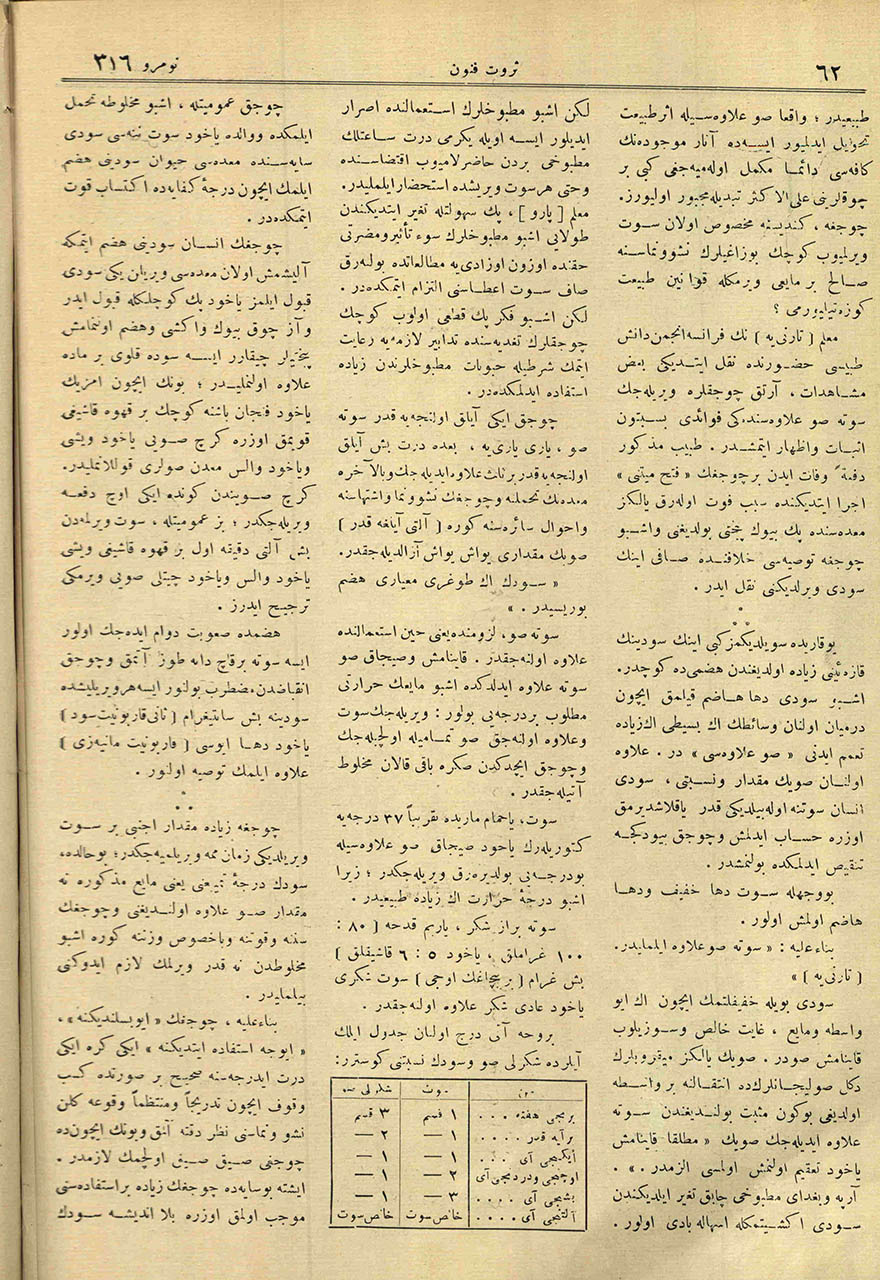 ٦٢
ثروت فنون
نومرو ٣١٦
طبيعيدر ؛ واقعا صو علاوه‌سيله اثر طبيعت
تحويل ايدلميور ايسه‌ده آثار موجوده‌نك
كافه‌سى دائما مكمل اوله‌ميه‌جغى كبى بر
چوقلرينى على الاكثر تبديله مجبور اوليورز.
چوجغه ، كنديسنه مخصوص اولان سوت
ويرلميوب كوچك بوزاغيلرك نشوونماسنه
صالح بر مايعى ويرمكله قوانين طبيعت
كوزه‌تيليورمى ؟
معلم ( تارنى‌يه ) نك فرانسه انجمن دانش
طبيسى حضورنده نقل ايتديكى بعض
مشاهدات ، آرتق چوجقلره ويريله‌جك
سوته صو علاوه‌سنده‌كى فوائدى بسبتون
اثبات واظهار ايتمشدر . طبيب مذكور
دفعةً وفات ايدن بر چوجغك « فتح ميتنى »
اجرا ايتديكنده سبب فوت اوله‌رق يالكز
معده‌سنده پك بيوك پختى بولديغنى واشبو
چوجغه توصيه‌سى خلافنده صافى اينك
سودى ويرلديكنى نقل ايدر .
يوقاريده سويلديكمز كبى اينك سودينك
قازه‌ئينى زياده اولديغندن هضمى ده كوچدر.
اشبو سودى دها هاضم قيلمق ايچون
درميان اولنان وسائطك اك بسيطى اك زياده
تعمم ايدنى « صو علاوه‌سى » در . علاوه
اولنان صويك مقدار ونسبتى ، سودى
انسان سوتنه اوله‌بيلديكى قدر ياقلاشديرمق
اوزره حساب ايدلمش وچوجق بيودكجه
تنقيص ايدلمكده بولنمشدر .
بووجهله سوت دها خفيف ودها
هاضم اولمش اولور .
بناءعليه : « سوته صو علاوه ايلمليدر.
( تارنى‌يه ) »
سودى بويله خفيفلتمك ايچون اك ايو
واسطه ومايع ، غايت خالص وسوزيلوب
قاينامش صودر . صويك يالكز ميقروبلرك
دكل صوليجانلرك‌ده انتقالنه بر واسطه
اولديغى بوكون مثبت بولنديغندن سوته
علاوه ايديله‌جك صويك « مطلقا قاينامش
ياخود تعقيم اولنمش اولمسى الزمدر . » .
آرپه وبغداى مطبوخى چابق تغير ايلديكندن
سودى اكشيتمكله اسهاله بادى اولور .
لكن اشبو مطبوخلرك استعمالنده اصرار
ايديلور ايسه اويله يكرمى درت ساعتلك
مطبوخى بردن حاضرلاميوب اقتضاسنده
وحتى هر سوت ويريشده استحضار ايلمليدر.
معلم [ پارو ] ، پك سهولتله تغير ايتديكندن
طولايى اشبو مطبوخلرك سوء تأثير ومضرتى
حقنده اوزون اوزادى‌يه مطالعاتده بوله‌رق
صاف سوت اعطاسنى التزام ايتمكده‌در .
لكن اشبو فكر پك قطعى اولوب كوچك
چوجقلرك تغديه‌سنده تدابير لازمه‌يه رعايت
ايتمك شرطيله حبوبات مطبوخلرندن زياده
استفاده ايدلمكده‌در .
چوجق ايكى آيلق اولنجه‌يه قدر سوته
صو ، يارى يارى‌يه ، بعده درت بش آيلق
اولنجه‌يه قدر بر ثلث علاوه ايديله‌جك وبالآخره
معده‌نك تحملنه وچوجغك نشوونما واشتهاسنه
واحوال سائره‌سنه كوره ( آلتى آيلغه قدر )
صويك مقدارى يواش يواش آزالديله‌جقدر.
« سودك اك طوغرى معيارى هضم
بوريسيدر . »
سوته صو، لزومنده يعنى حين استعمالنده
علاوه اولنه‌جقدر . قاينامش وصيجاق صو
سوته علاوه ايدلدكده اشبو مايعك حرارتى
مطلوب بردرجه‌يى بولور : ويريله‌جك سوت
وعلاوه اولنه‌جق صو تماميله اولچيله‌جك
وچوجق ايچدكدن صكره باقى قالان مخلوط
آتيله‌جقدر .
سوت، ياحمام ماريده تقريباً ٣٧ درجه‌يه
كتوريله‌رك ياخود صيجاق صو علاوه‌سيله
بودرجه‌يى بولديره‌رق ويريله‌جكدر ؛ زيرا
اشبو درجۀ حرارت اك زياده طبيعيدر.
سوته براز شكر ، ياريم قدحه [ ٨٠ :
١٠٠ غراملق ، ياخود ٥ : ٦ قاشيقلق ]
بش غرام ( بر بيچاغك اوجى ) سوت شكرى
ياخود عادى شكر علاوه اولنه‌جقدر .
بروجه آتى درج اولنان جدول ايلك
آيلرده شكرلى صو وسودك نسبتنى كوسترر:
سوت شكرلى صو
برنجى هفته . . . . ١ قسم ٣ قسم
برآيه قدر . . . . ١ — ٢ —
ايكنجى آى . . . ١ — ١ —
اوچنجى ودردنجى آى ٢ — ١ —
بشنجى آى . . . . ٣ — ١ —
آلتنجى آى . . . . خالص سوت خالص سوت
چوجق عموميتله ، اشبو مخلوطه تحمل
ايلمكده ووالده ياخود سوت ننه‌سى سودى
سايه‌سنده معده‌سى حيوان سودينى هضم
ايلمك ايچون درجۀ كفايه‌ده اكتساب قوت
ايتمكده‌در .
چوجغك انسان سودينى هضم ايتمكه
آليشمش اولان معده‌سى ويريلن يكى سودى
قبول ايلمز ياخود پك كوچلكله قبول ايدر
وآز چوق بيوك واكشى وهضم اولنمامش
پختيلر چيقارر ايسه سوده قلوى بر ماده
علاوه اولنمليدر ؛ بونك ايچون امزيك
ياخود فنجان باشنه كوچك بر قهوه قاشيغى
قويمق اوزره كرج صويى ياخود ويشى
وياخود والس معدن صولرى قوللانمليدر.
كرج صويندن كونده ايكى اوچ دفعه
ويريله‌جكدر ؛ بز عموميتله ، سوت ويرلمه‌دن
بش آلتى دقيقه اول بر قهوه قاشيغى ويشى
ياخود والس وياخود چيتلى صويى ويرمكى
ترجيح ايدرز .
هضمده صعوبت دوام ايده‌جك اولور
ايسه سوته برقاچ دانه طوز آتمق وچوجق
انقباضدن مضطرب بولنور ايسه هر ويريليشده
سودينه بش سانتيغرام ( ثانى قاربونيت سود )
ياخود دها ايوسى ( قاربونيت مانيه‌زى )
علاوه ايلمك توصيه اولنور .
چوجغه زياده مقدار اجنبى بر سوت
ويريلديكى زمان ممه ويريلميه‌جكدر؛ بوحالده،
سودك درجۀ تمييعنى يعنى مايع مذكوره نه
مقدار صو علاوه اولنديغنى وچوجغك
سننه وقوتنه وباخصوص وزننه كوره اشبو
مخلوطدن نه قدر ويرلمك لازم ايدوكنى
بيلمليدر .
بناءعليه ، چوجغك « ايو بسلنديكنه » ،
« ايوجه استفاده ايتديكنه » ايكى كره ايكى
درت ايدرجه‌سنه صحيح بر صورتده كسب
وقوف ايچون تدريجاً ومنتظماً وقوعه كلن
نشو ونماسنى نظر دقته آلمق وبونك ايچون‌ده
چوجغى صيق صيق اولچمك لازمدر .
ايشته بوسايه‌ده چوجغك زياده بر استفاده‌سنى
موجب اولمق اوزره بلا انديشه سودك